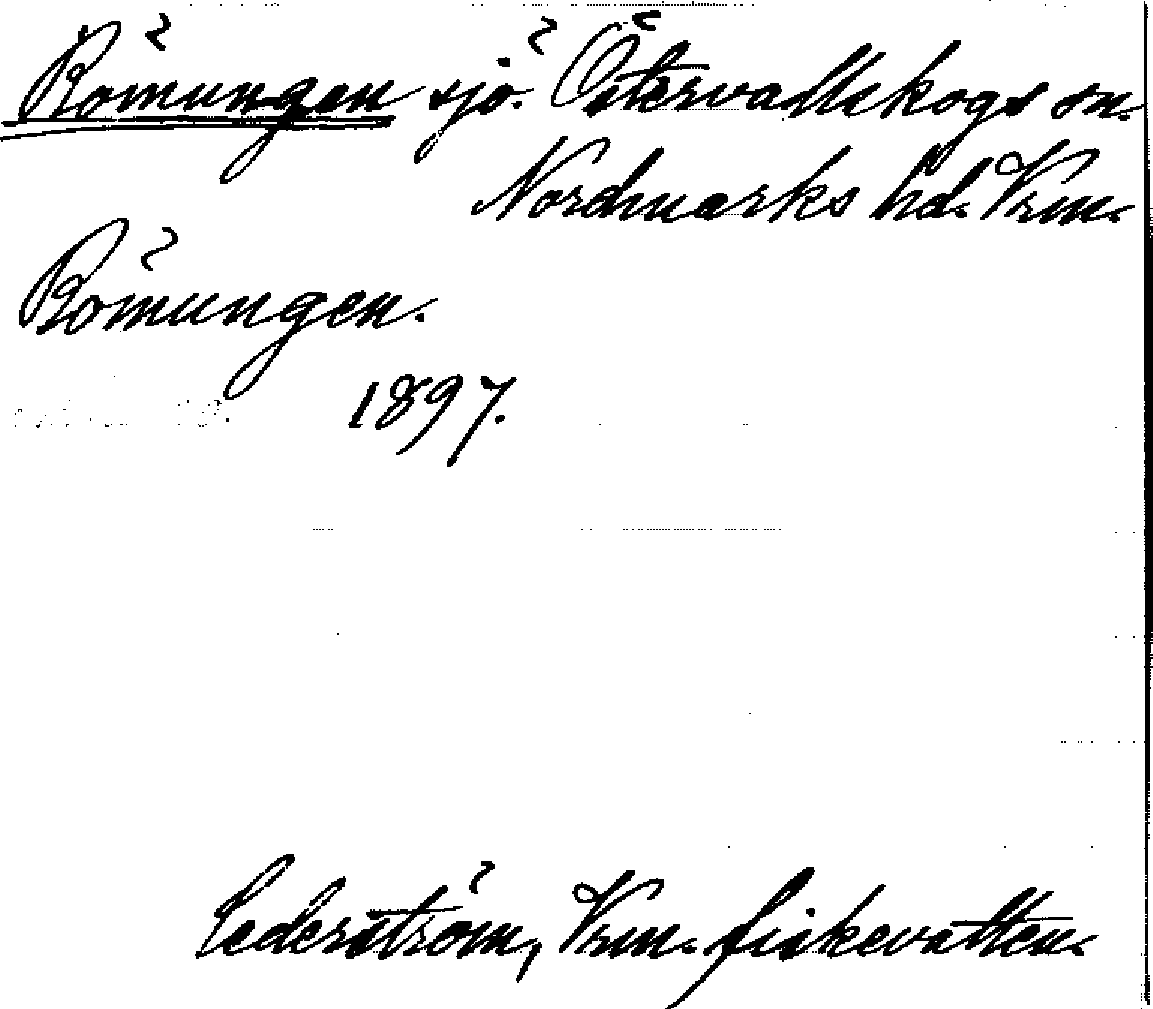 Römungen sjö. Östervallskogs sn.
Nordmarks hd. Vrm.
Römungen.
1897.
Cederström, Vrm. fiskevatten.